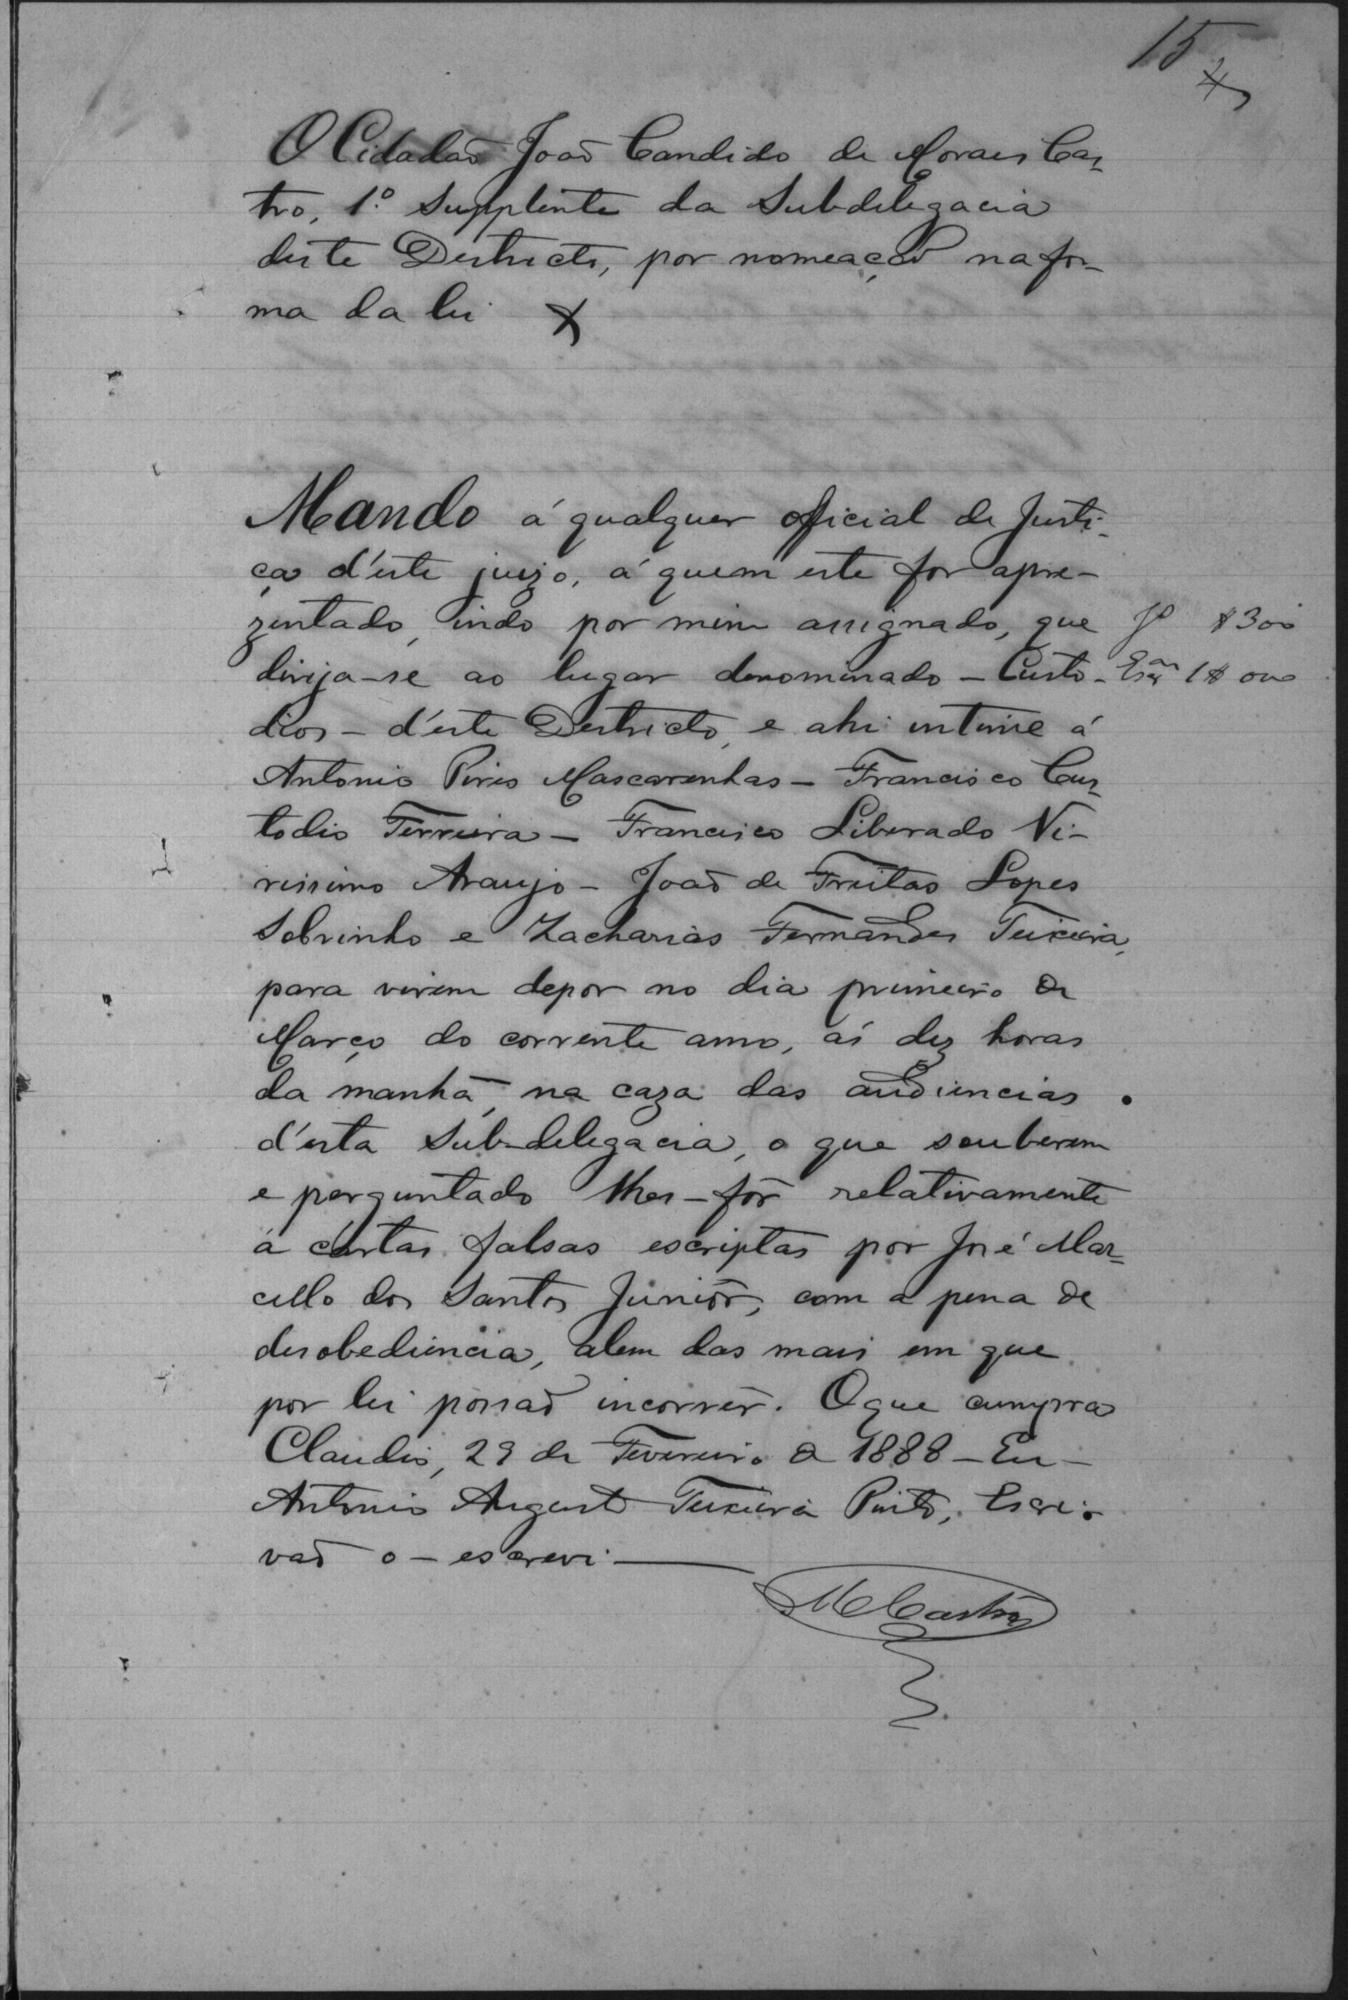 15
O Cidadaõ Joaõ Candido de Moraes Cas-
tro, 1º Supplente da Subdelegacia
deste Destricto, por nomeaçaõ na for-
ma da lei
Mando á qualquer official de Justi-
ça d'este juizo, á quem este for apre-
zentado, indo por mim assignado, que
Jº $300
dirija-se ao lugar denominado - Custo-
Esam 1$000
dios - d'este Destricto, e ahi intime á
Antonio Pires Mascarenhas - Francisco Cus-
todio Ferreira - Francisco Liberado Ve-
rissimo Araujo - Joaõ de Freitas Lopes
Sobrinho e Zacharias Fernandes Teixeira,
para virem depor no dia primeiro de
Março do corrente anno, ás dez horas
da manhã, na caza das audiencias
d'esta Sub-delegacia, o que souberem
e perguntado lhes-fôr relativamente
á cartas falsas escriptas por José Mar-
cello dos Santos Junior, com a pena de
desobediencia, alem das mais em que
por lei possaõ incorrer. O que cumpra
Claudio, 29 de Fevereiro de 1888 - Eu -
Antonio Augusto Teixeira Pinto, Escri-
vaõ o - escrevi.
MCastro